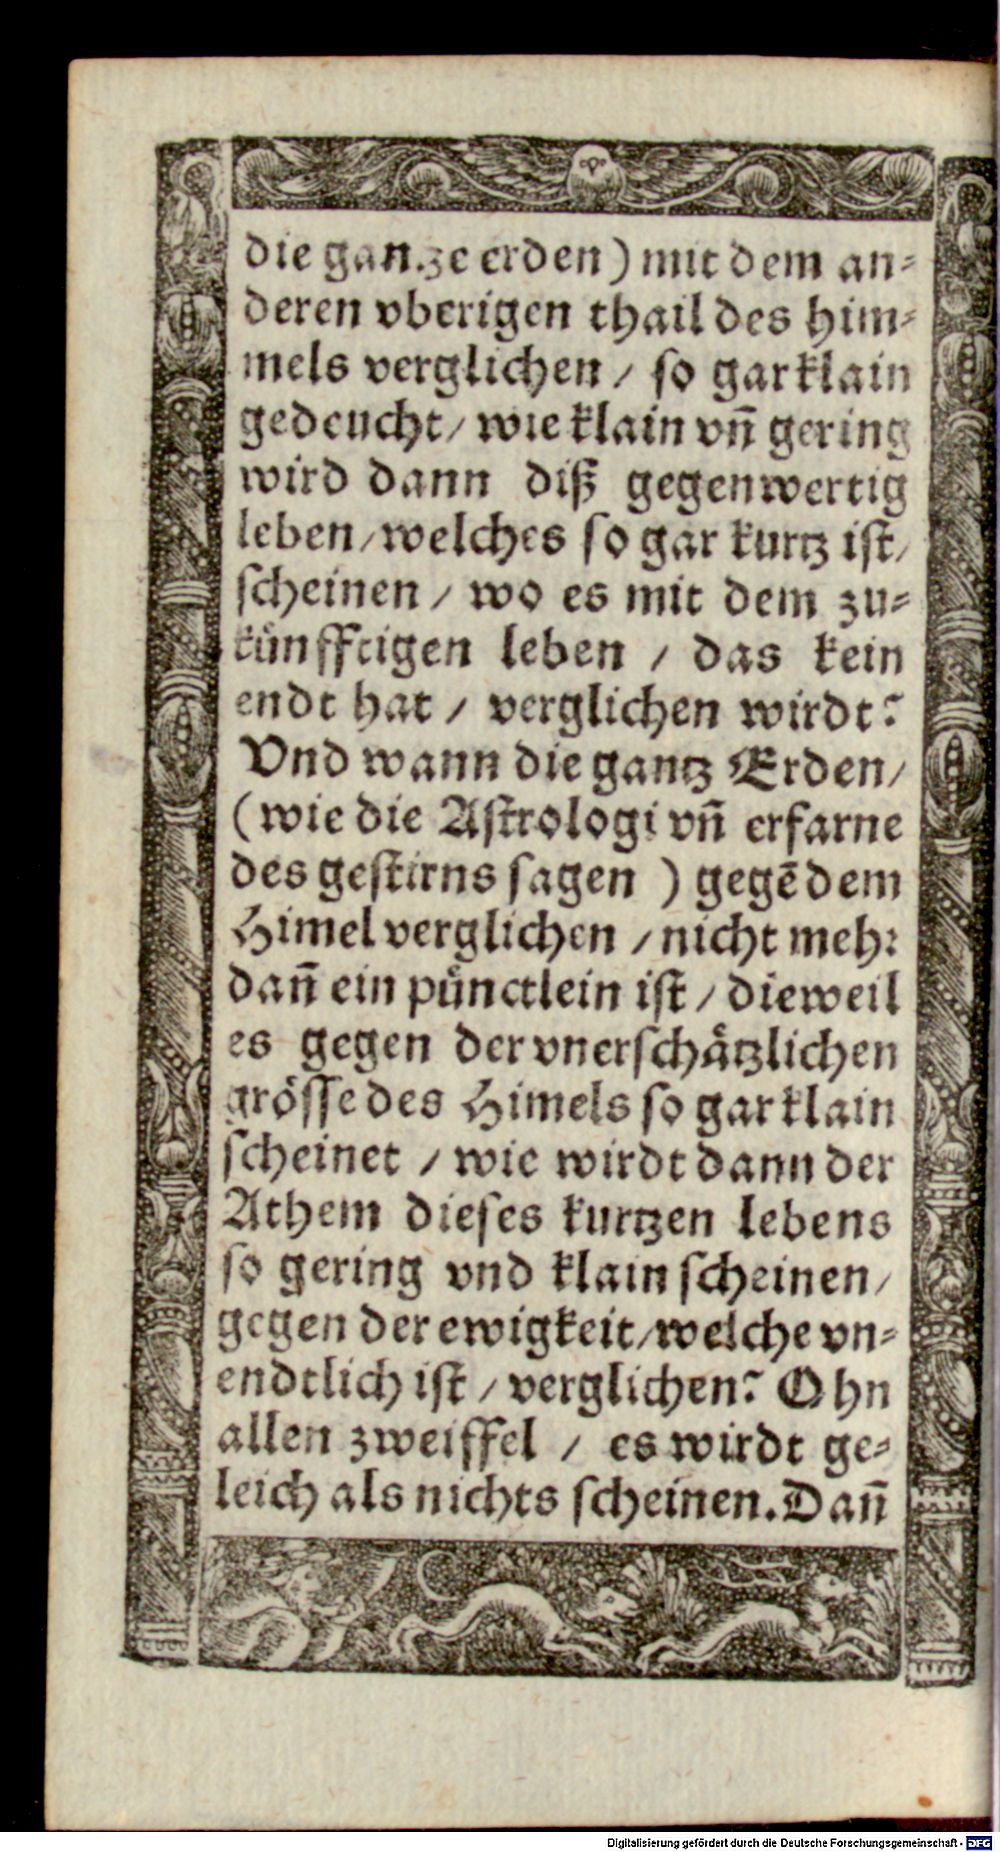 die gantze erden) mit dem an⸗
deren vberigen thail des him⸗
mels verglichen / so gar klain
gedeucht / wie klain vñ gering
wird dann diß gegenwertig
leben / welches so gar kurtz ist /
scheinen / wo es mit dem zu⸗
kuͤnfftigen leben / das kein
endt hat / verglichen wirdt?
Vnd wann die gantz Erden /
(wie die Astrologi vñ erfarne
des gestirns sagen ) gegẽ dem
Himel verglichen / nicht mehr
dañ ein puͤnctlein ist / dieweil
es gegen der vnerschaͤtzlichen
groͤsse des Himels so gar klain
scheinet / wie wirdt dann der
Athem dieses kurtzen lebens
so gering vnd klain scheinen /
gegen der ewigkeit / welche vn⸗
endtlich ist / verglichen? Ohn
allen zweiffel / es wirdt ge⸗
leich als nichts scheinen. Dañ
Digitalisierung gefördert durch die Deutsche Forschungsgemeinschaft - DFG